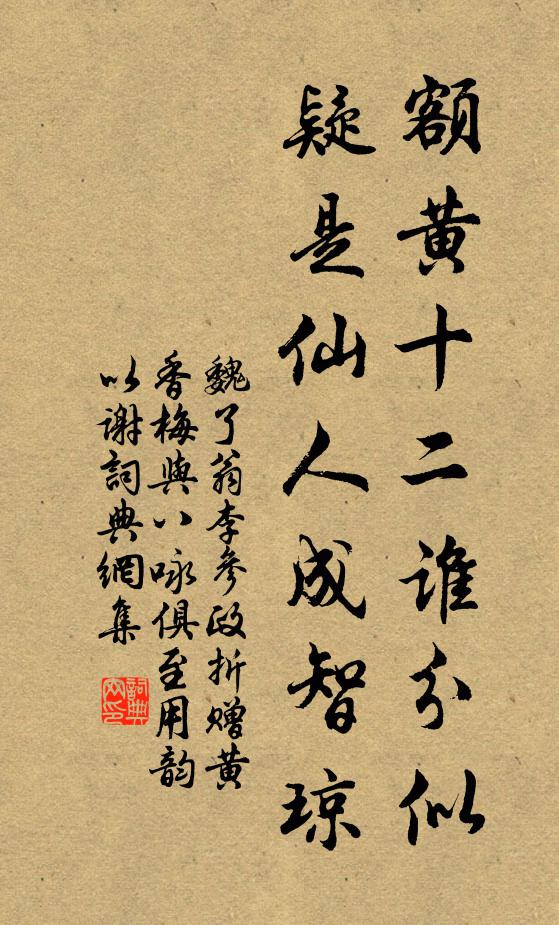 額黄十二誰分似
疑是仙人成智琼
魏了翁李參政折赠黄
香梅與八咏俱至用韵
以谢詞典網集
詞典网印